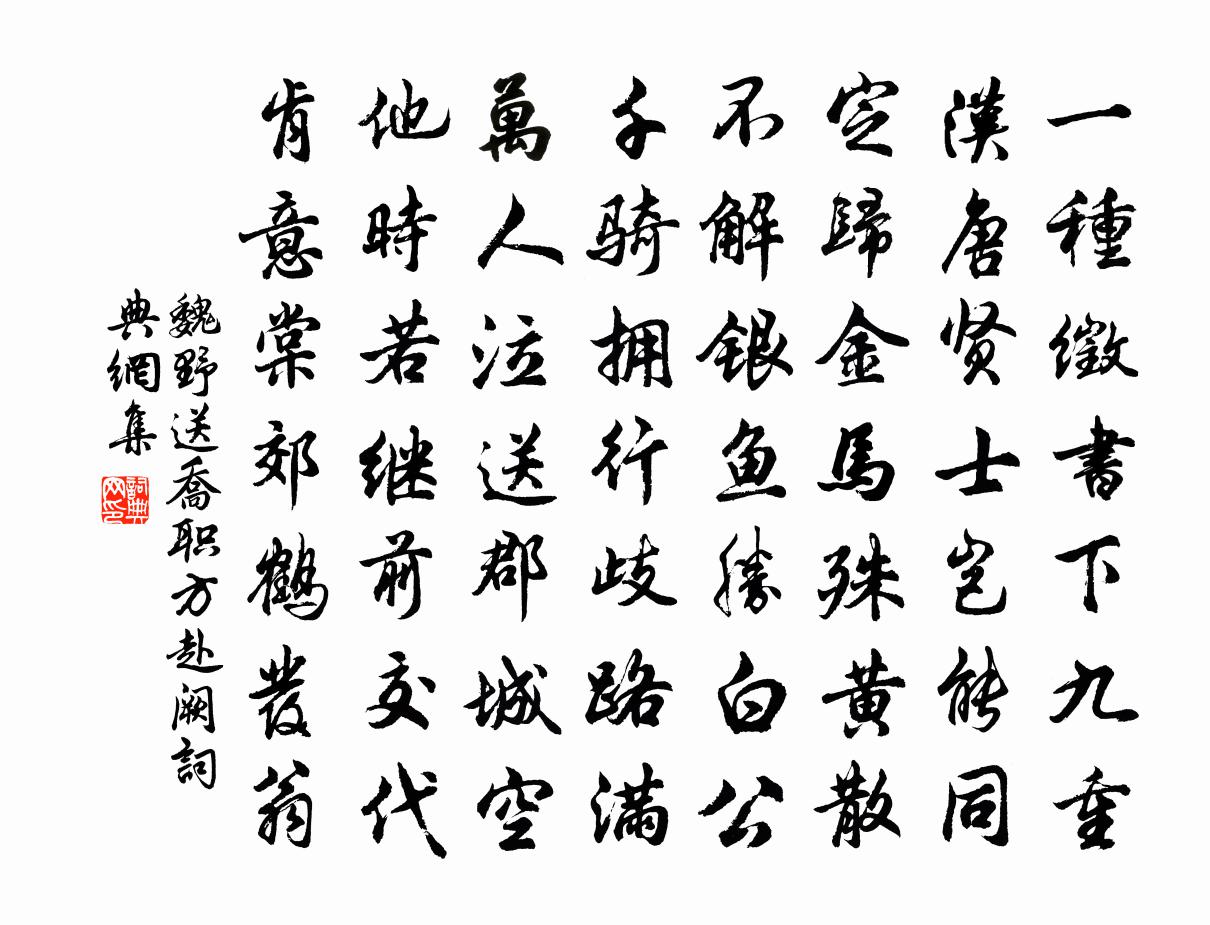 一種徵書下九重
漢唐贤士岂能同
定歸金馬殊黄散
不解银鱼勝白公
千骑拥行歧路满
萬人泣送郡城空
他時若继前交代
肯意棠郊鶴發翁
魏野送喬职方赴阙詞
典網集
詞典网印